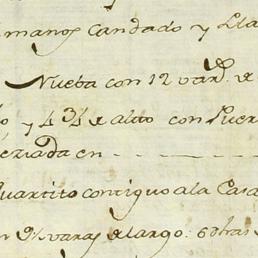 manos Candado y Lla
Nueba con 12 var.s de
y 4 3/4 de alto con Puer
en
quartito contiguo a la Casa
varas de largo: 6 dhas